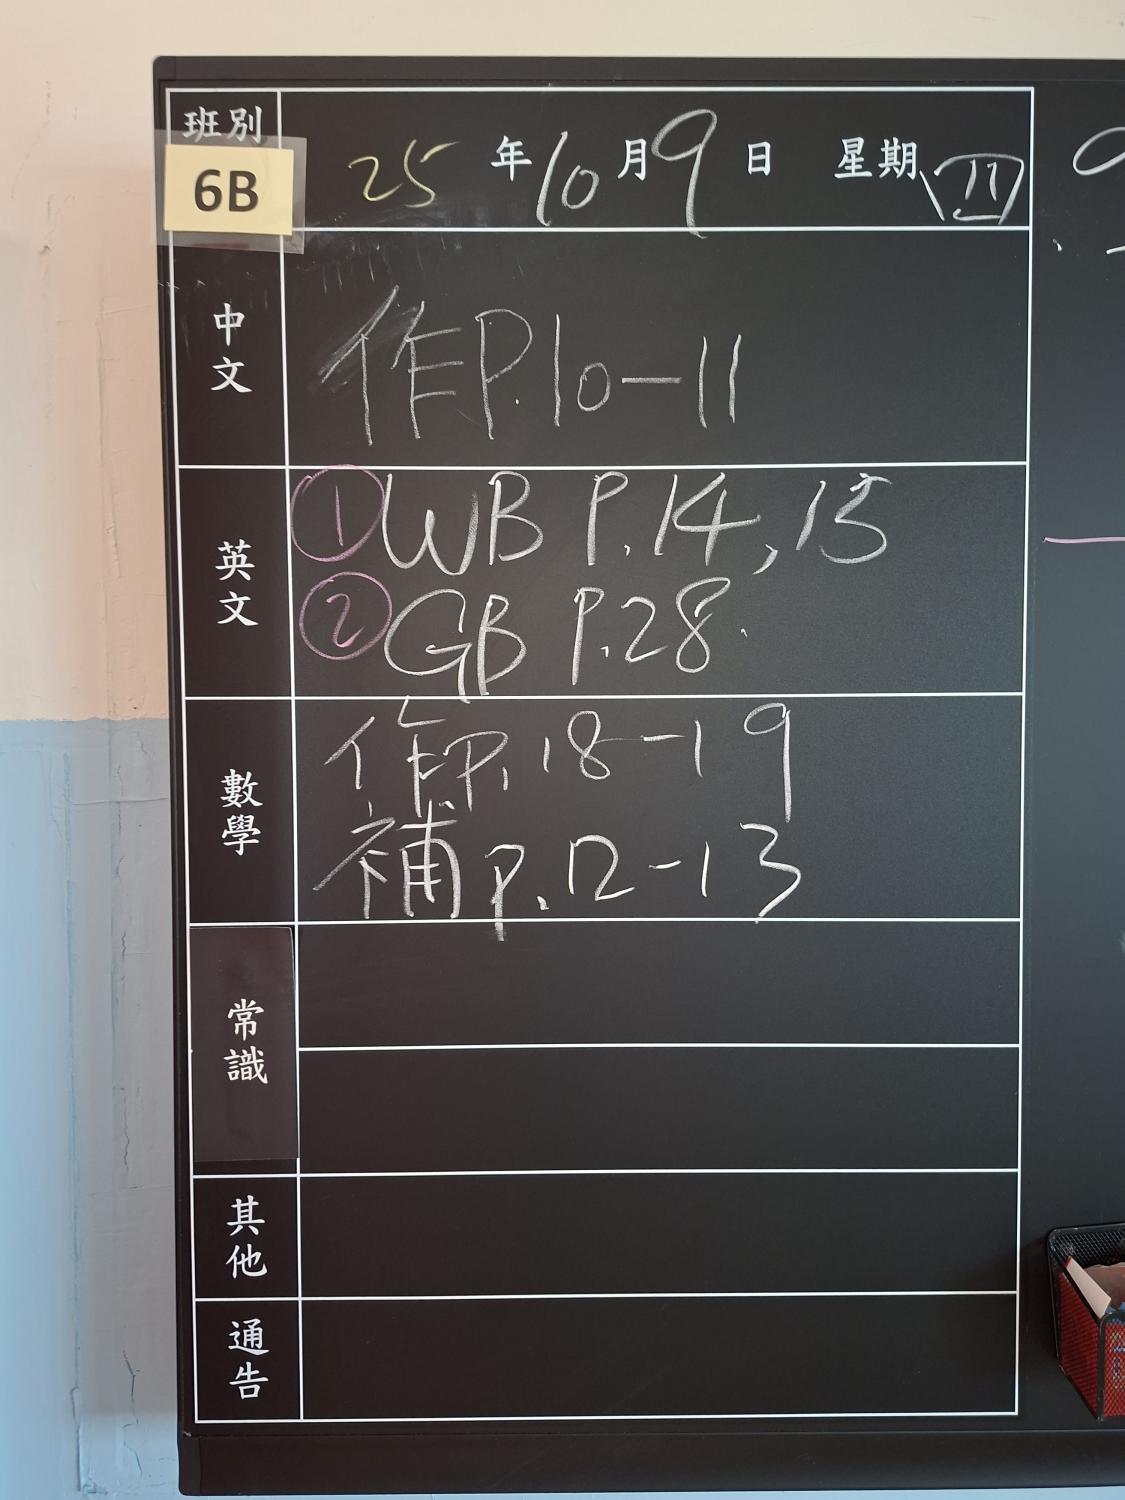 班別
6B
25年10月9日 星期四
中文
作P.10-11
英文
① WB P.14,15
② GB P.28.
數學
作P.18-19
補P.12-13
常識
其他
通告